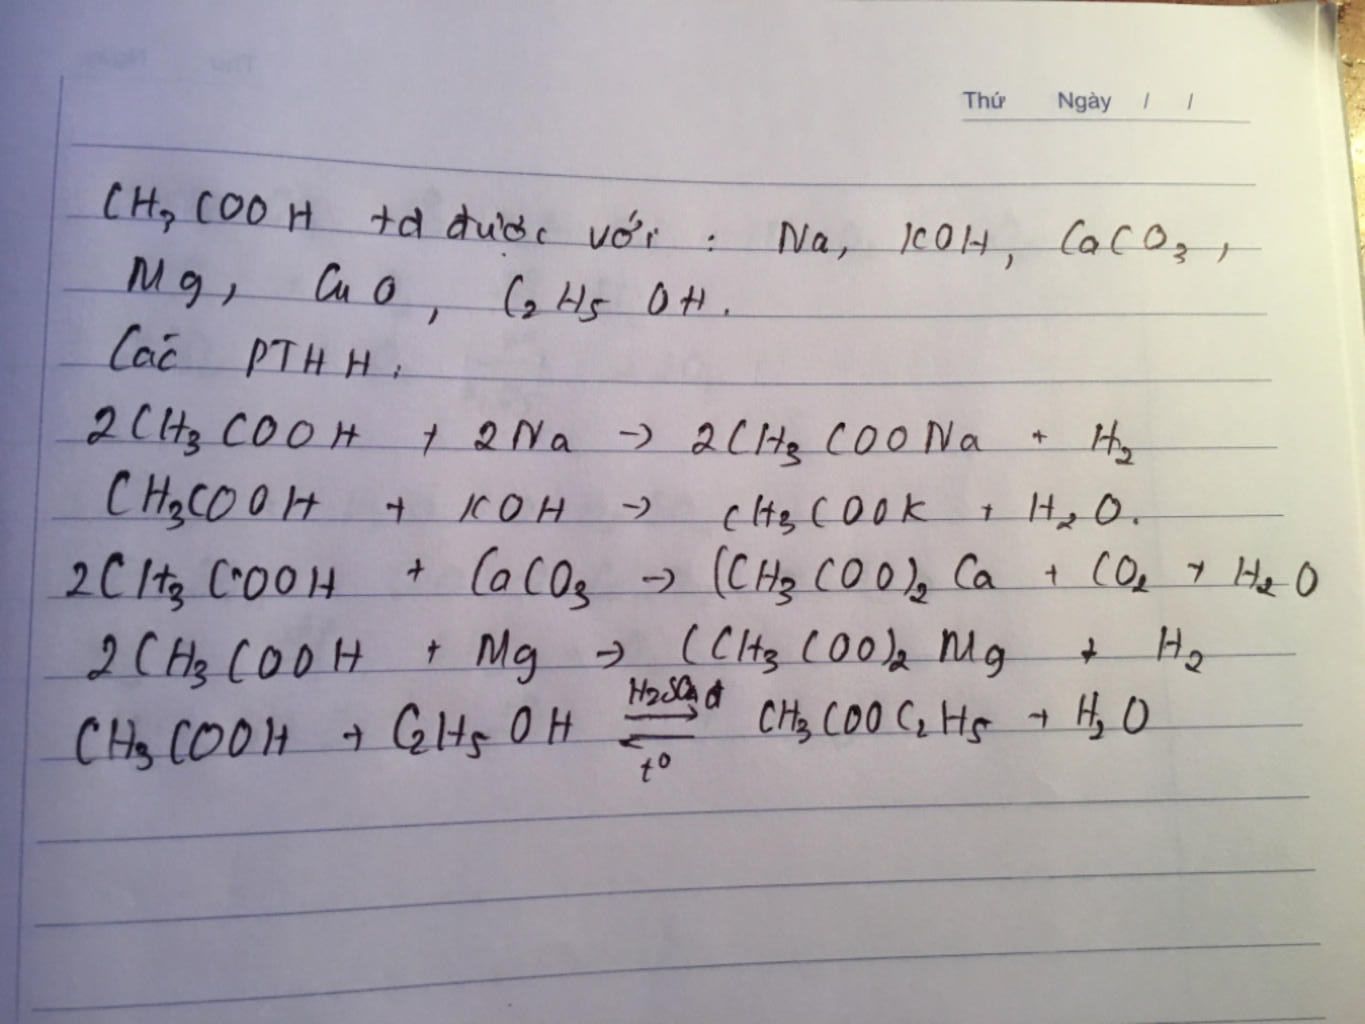 Thứ Ngày / /
CH3COOH td được với : Na, KOH, CaCO3,
Mg, CuO, C2H5OH.
Các PTHH:
2CH3COOH + 2Na → 2CH3COONa + H2
CH3COOH + KOH → CH3COOK + H2O.
2CH3COOH + CaCO3 → (CH3COO)2Ca + CO2 + H2O
2CH3COOH + Mg → (CH3COO)2Mg + H2
CH3COOH + C2H5OH ⇌ H2SO4 đ t° CH3COOC2H5 + H2O